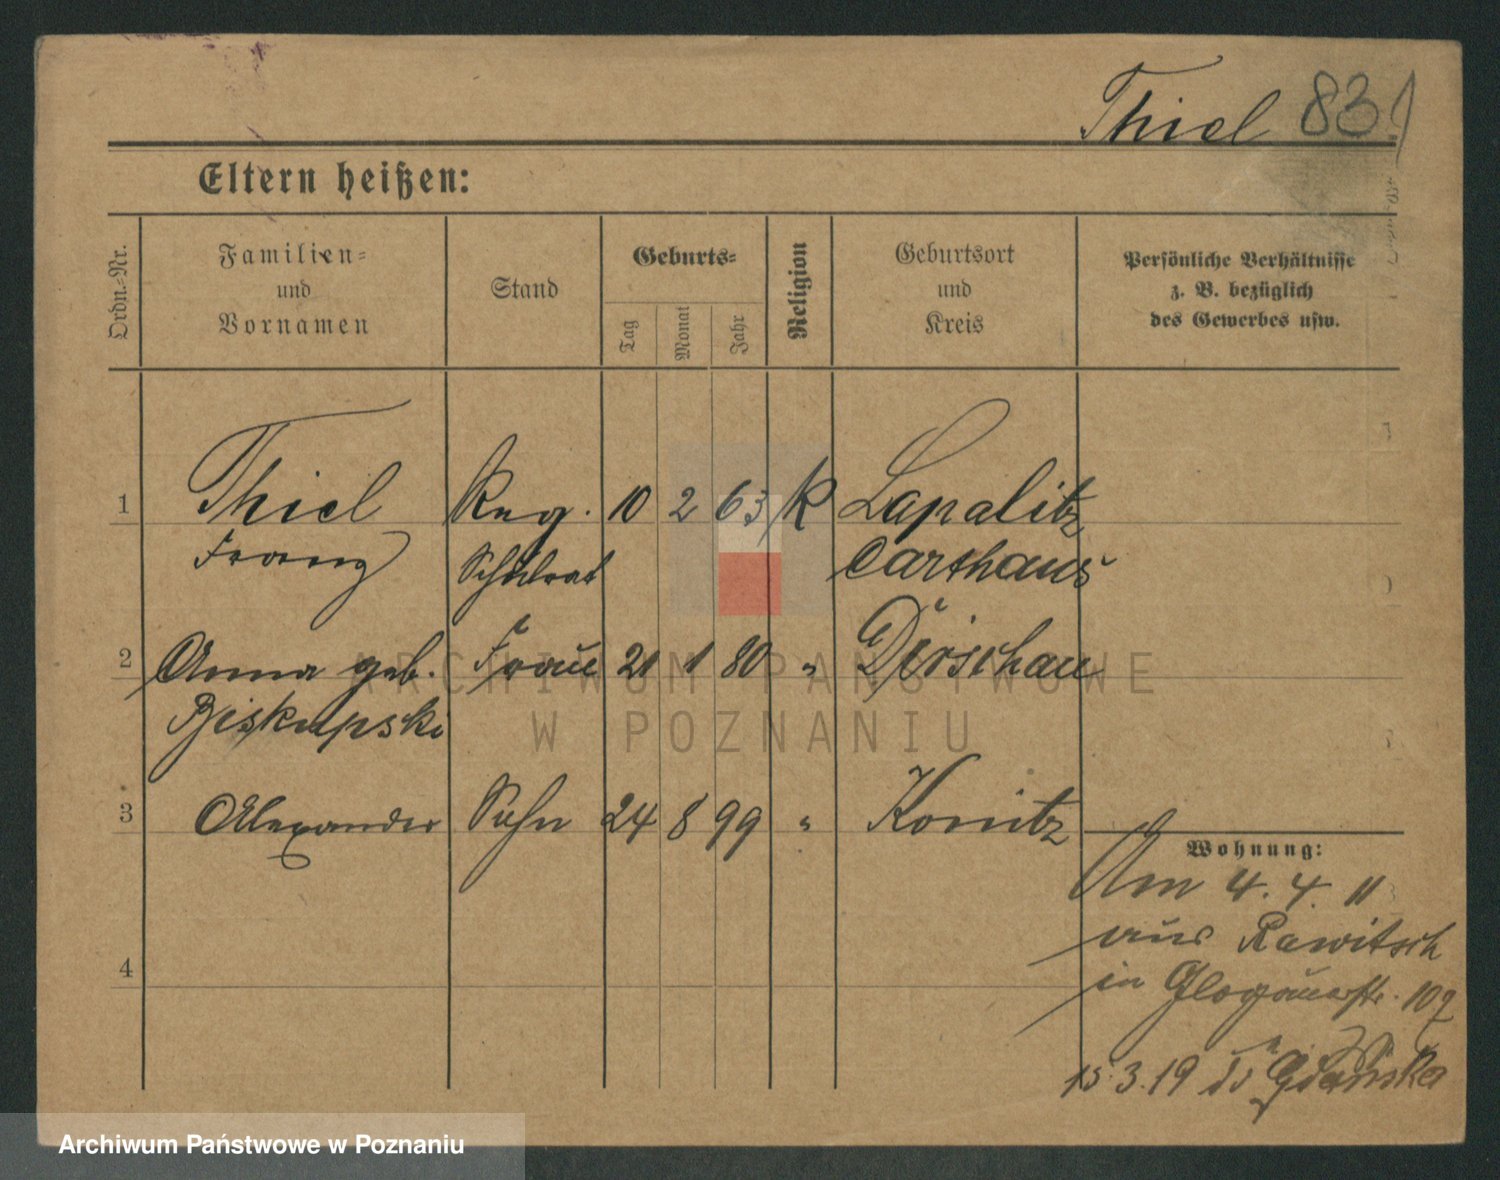 Thiel 83
Eltern heißen:
Ordn.-Nr.
Familien-
und
Vornamen
Stand
Geburts-
Tag
Monat
Jahr
Religion
Geburtsort
und
Kreis
Persönliche Verhältnisse
z. B. bezüglich
des Gewerbes usw.
1 Thiel Reg. 10 2 63 K Lapalitz
Franz Schulrat Carthaus
2 Anna geb. Frau 21 1 80 " Dirschau
Biskupski
3 Alexander Sohn 24 8 99 " Konitz
Wohnung:
Am 4. 4. 11
aus Rawitsch
in Glogauerstr. 107
4
15.3.19 Gdańska
ARCHIWUM PAŃSTWOWE
W POZNANIU
Archiwum Państwowe w Poznaniu